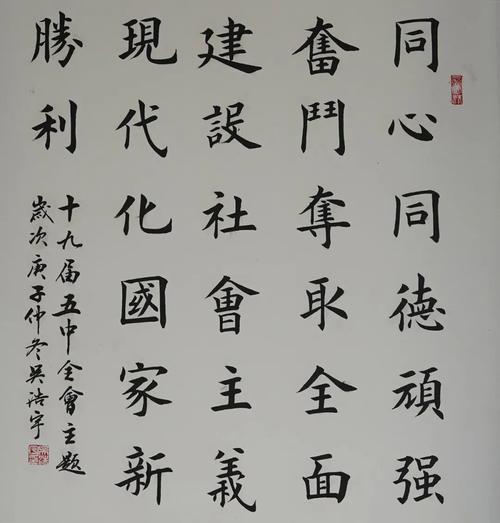 同心同德頑强
奮鬥奪取全面
建設社會主義
現代化國家新
勝利
十九届五中全會主題
歲次庚子仲冬吴浩宇